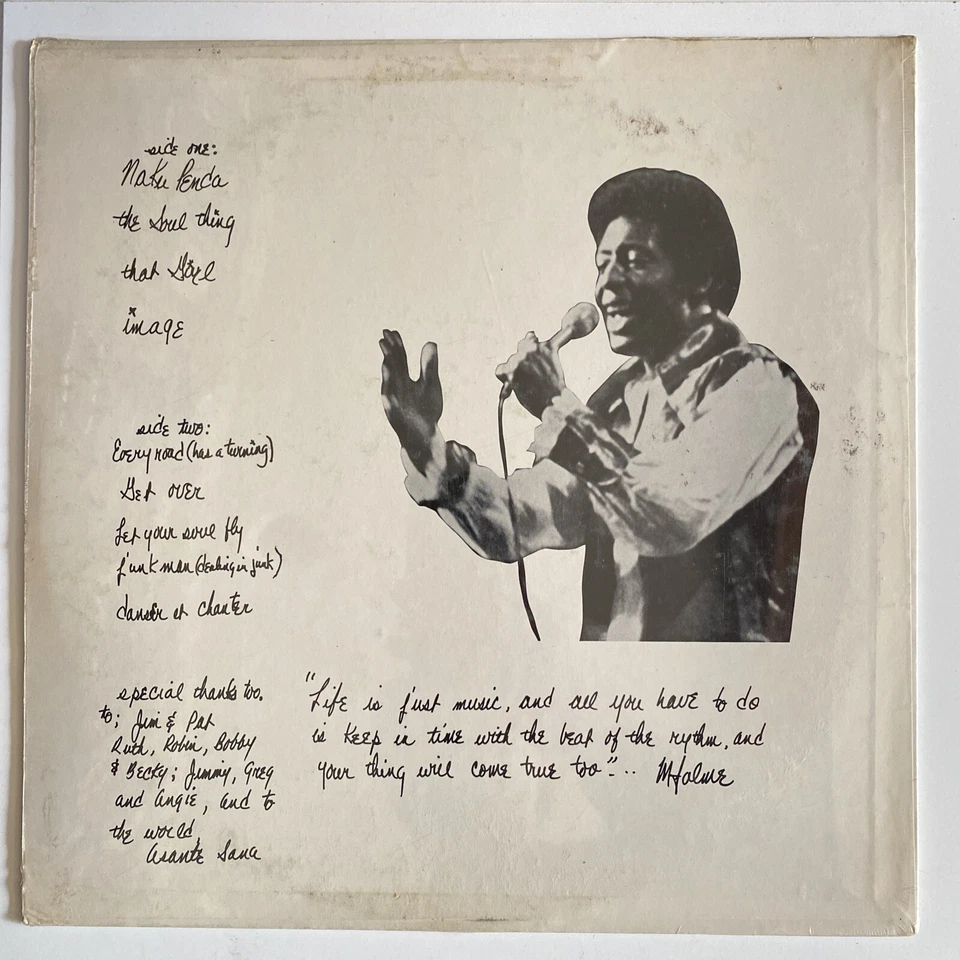 side one:
Naku Penda
the Soul thing
that Girl
image
side two:
Every road (has a turning)
Get over
Let your soul fly
funkman (dealing in junk)
danser et chanter
special thanks too.
to; Jim & Pat
Ruth, Robin, Bobby
& Becky; Jimmy, Greg
and Angie, and to
the world,
Asante Sana
"Life is just music, and all you have to do
is keep in time with the beat of the rythm, and
your thing will come true too"...